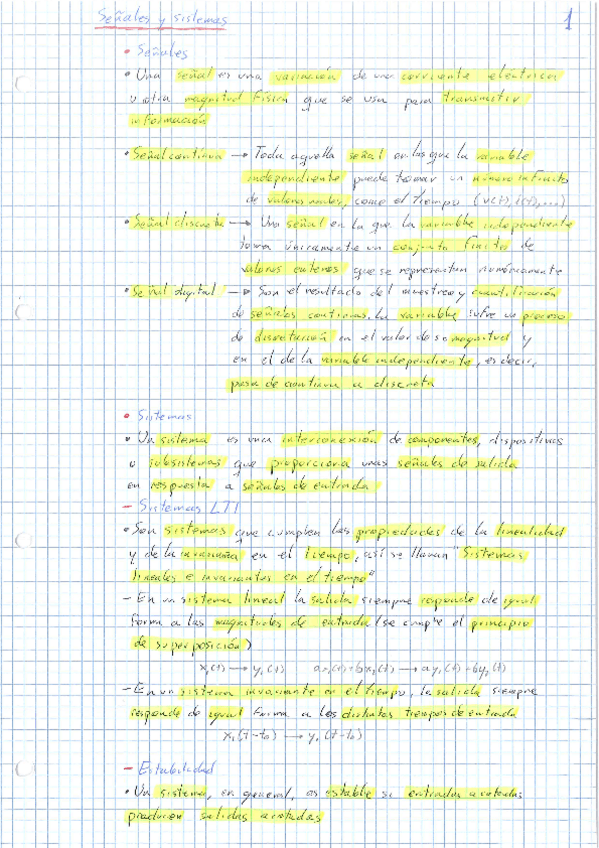 Señales y sistemas
1
• Señales
• Una señal es una variación de una corriente eléctrica
u otra magnitud física que se usa para transmitir
información
• Señal continua → Toda aquella señal en las que la variable
independiente puede tomar un número infinito
de valores reales, como el tiempo (v(t), i(t),...)
• Señal discreta → Una señal en la que la variable independiente
toma únicamente un conjunto finito de
valores enteros que se representan numéricamente
• Señal digital → Son el resultado del muestreo y cuantificación
de señales continuas. La variable sufre un proceso
de discretización en el valor de su magnitud y
en el de la variable independiente, es decir,
pasa de continua a discreta
• Sistemas
• Un sistema es una interconexión de componentes, dispositivos
o subsistemas que proporciona unas señales de salida
en respuesta a señales de entrada
- Sistemas LTI
• Son sistemas que cumplen las propiedades de la linealidad
y de la invarianza en el tiempo, así se llaman "Sistemas
lineales e invariantes en el tiempo"
- En un sistema lineal la salida siempre responde de igual
forma a las magnitudes de entrada (se cumple el principio
de superposición)
x₁(t) → y₁(t) ax₁(t)+bx₂(t) → ay₁(t)+by₂(t)
- En un sistema invariante en el tiempo, la salida siempre
responde de igual forma a los distintos tiempos de entrada
x₁(t-t₀) → y₁(t-t₀)
- Estabilidad
• Un sistema, en general, es estable si entradas acotadas
producen salidas acotadas